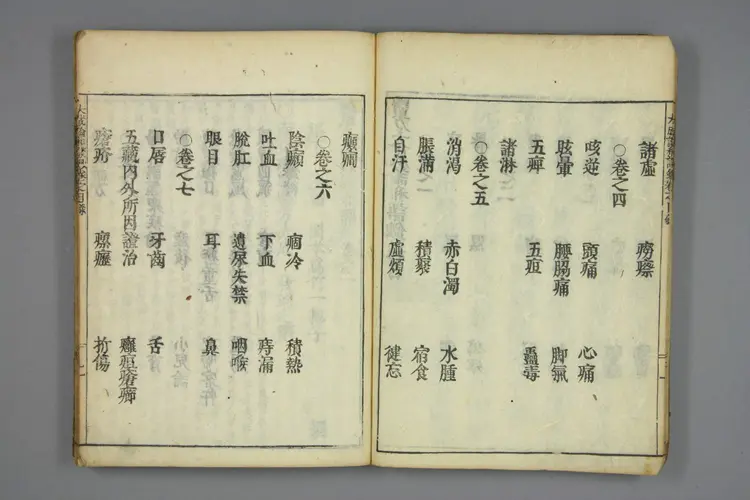 諸虛 癆瘵
○卷之四
咳逆 頭痛 心痛
眩暈 腰腸痛 脚氣
五痺 五疸 蠱毒
諸淋
○卷之五
消渴 赤白濁 水腫
脹滿 積聚 宿食
自汗 虛煩 健忘
癲癇
○卷之六
陰㿗 痼冷 積熱
吐血 下血 痔漏
脫肛 遺尿失禁 咽喉
眼目 耳 鼻
○卷之七
口唇 牙齒 舌
五臟內外所因證治 癰疽
瘰癧 折傷